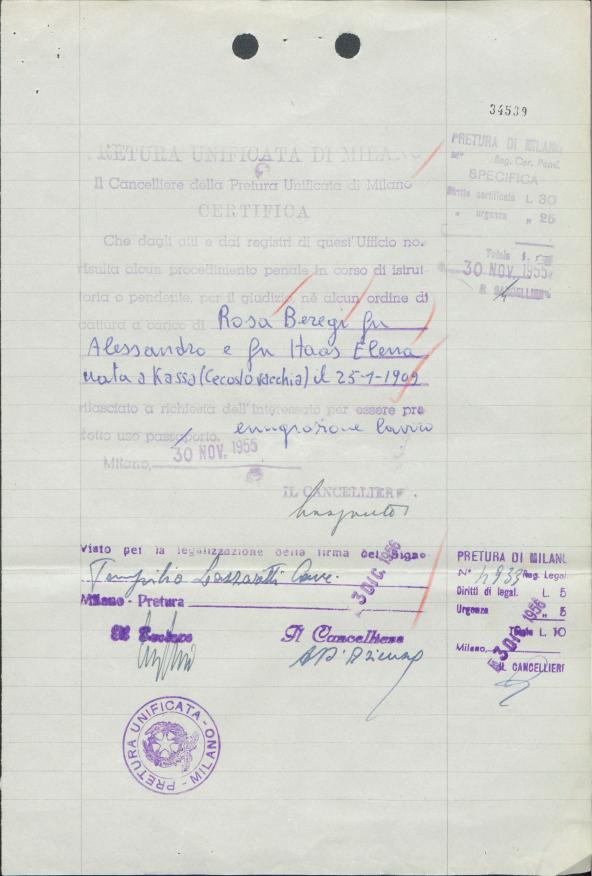 34539
PRETURA UNIFICATA DI MILANO
Il Cancelliere della Pretura Unificata di Milano
CERTIFICA
Che dagli atti e dai registri di quest'Ufficio non
risulta alcun procedimento penale in corso di istrut
toria o pendente, per il giudizio, né alcun ordine di
cattura a carico di Rosa Beregi fu
Alessandro e fu Haas Elena
nata a Kassa (Cecoslovacchia) il 25-1-1909
rilasciato a richiesta dell'interessato per essere pro
dotto uso passaporto. emigrazione lavoro
Milano, 30 NOV. 1955
IL CANCELLIERE
PRETURA DI MILANO
N° Reg. Car. Pend.
SPECIFICA
Diritto certificato L. 30
" urgenza " 25
Totale
30 NOV. 1955
IL CANCELLIERE
Visto per la legalizzazione della firma del Signor
Cave.
Milano - Pretura
3 DIC. 1956
Il Cancelliere
PRETURA DI MILANO
N° 4933 Reg. Legal
Diritti di legal. L. 5
Urgenza " 5
Totale L. 10
Milano, 3 DIC 1956
IL CANCELLIERE
PRETURA UNIFICATA - MILANO -